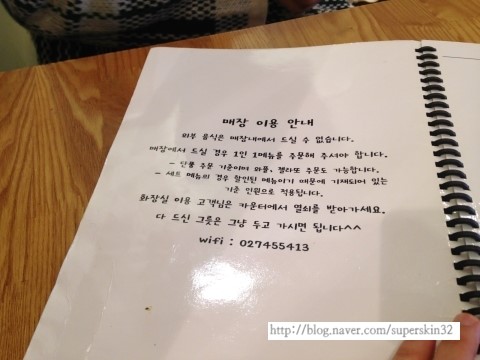 매장 이용 안내
외부 음식은 매장내에서 드실 수 없습니다.
매장에서 드실 경우 1인 1메뉴를 주문해 주셔야 합니다.
- 단품 주문 기준이며 와플, 젤라또 주문도 가능합니다.
- 세트 메뉴의 경우 할인된 메뉴이기 때문에 기재되어 있는
기준 인원으로 적용됩니다.
화장실 이용 고객님은 카운터에서 열쇠를 받아가세요.
다 드신 그릇은 그냥 두고 가시면 됩니다^^
wifi : 027455413
http://blog.naver.com/superskin32